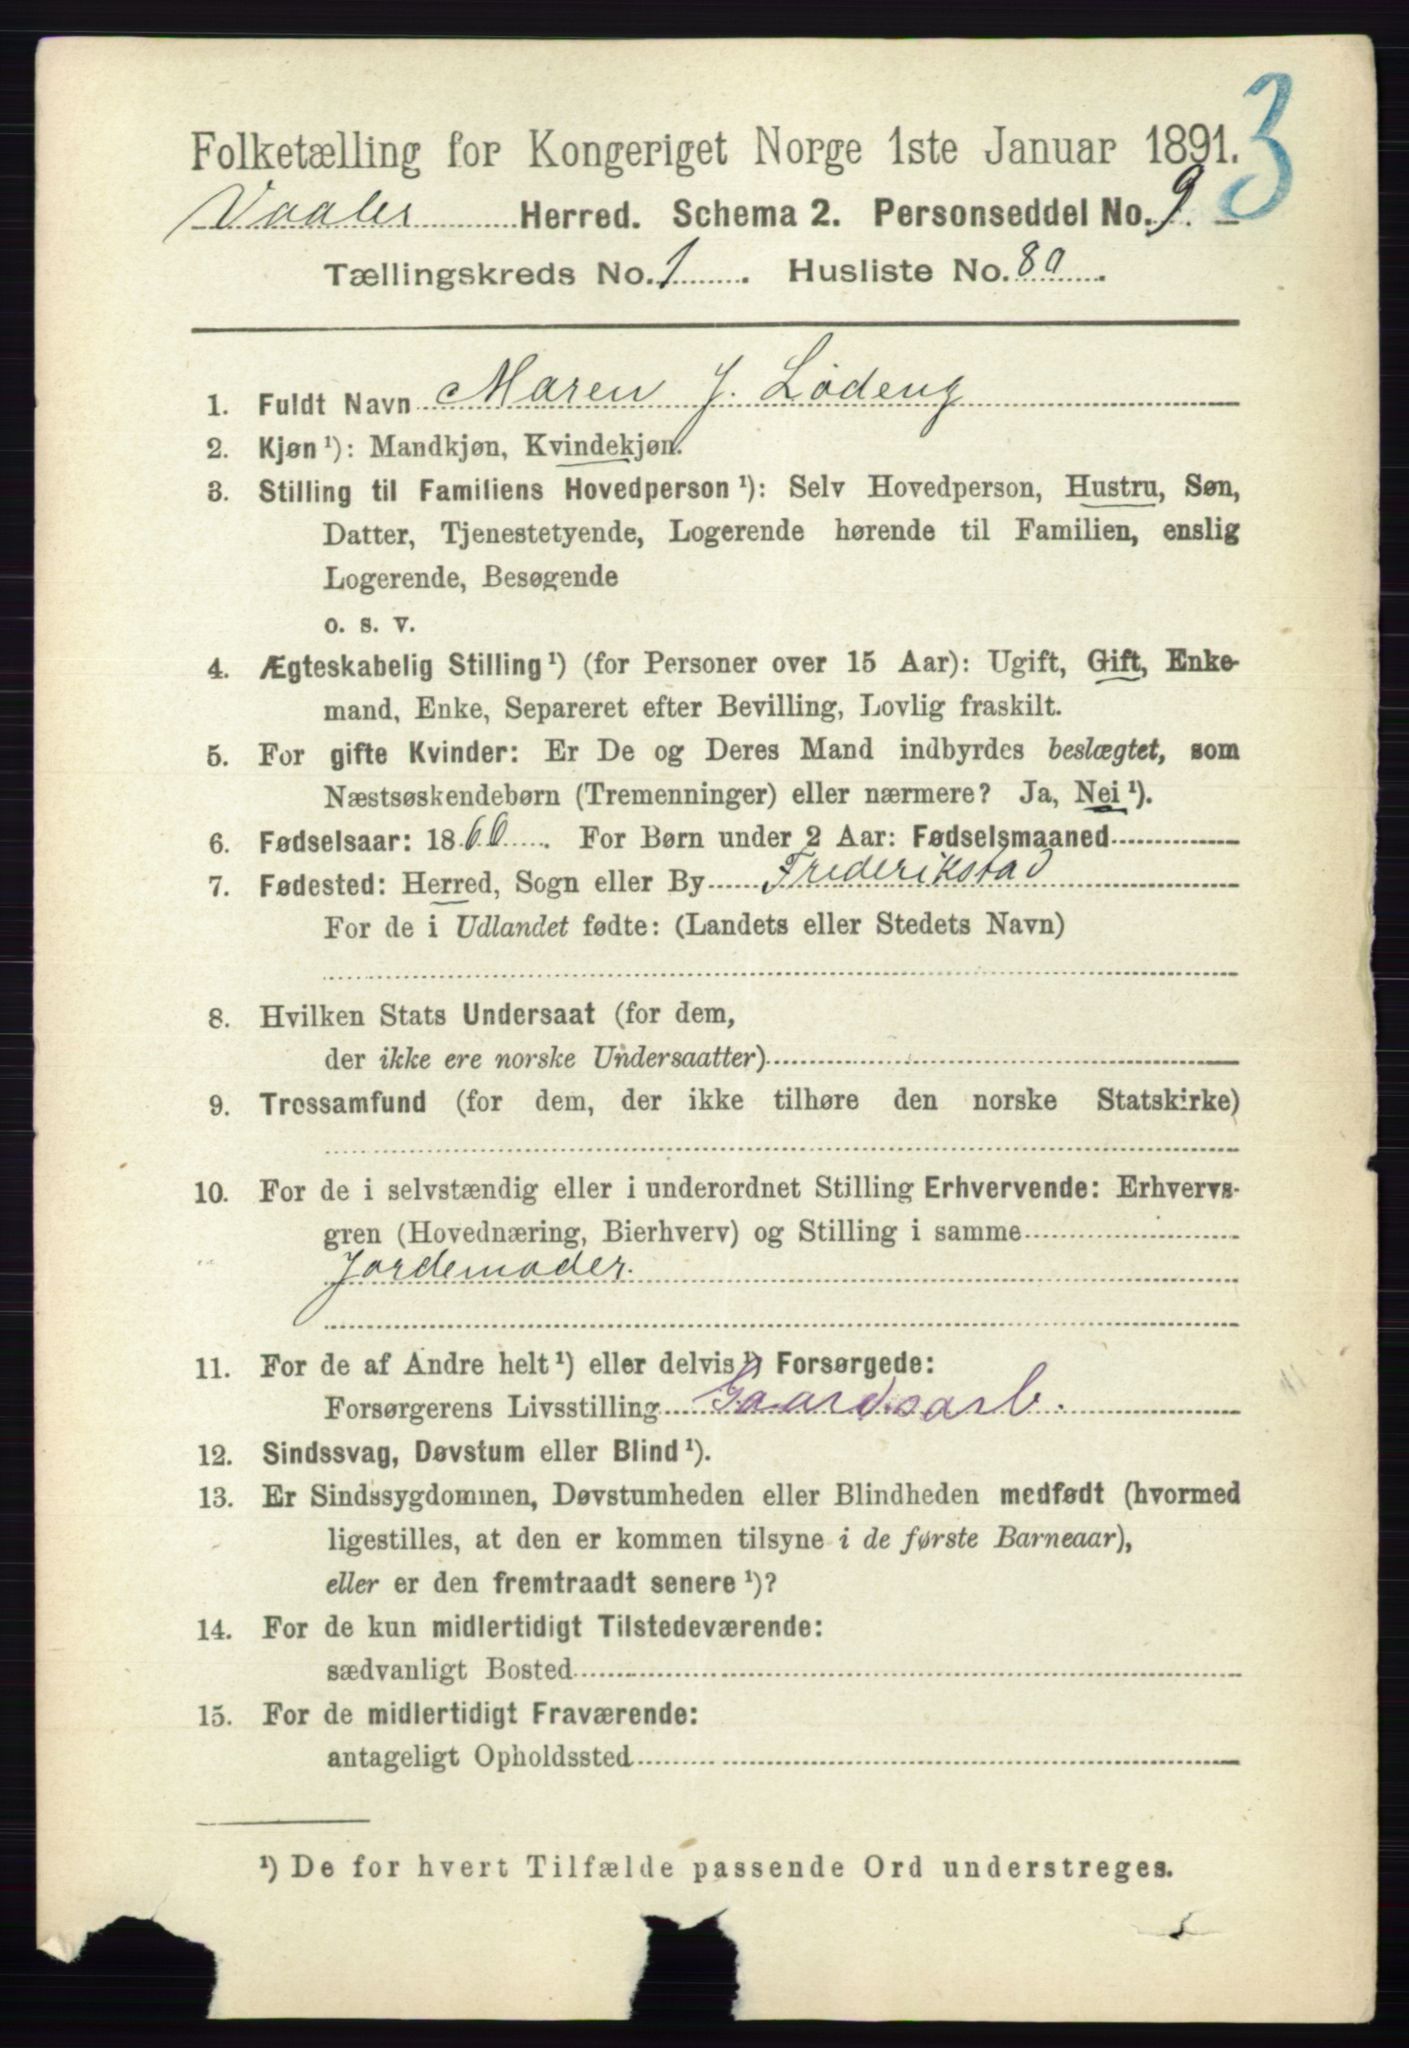 3
Folketælling for Kongeriget Norge 1ste Januar 1891.
Vaaler Herred. Schema 2. Personseddel No. 9.
Tællingskreds No. 1. Husliste No. 80.
1. Fuldt Navn Maren J. Lödeng
2. Kjøn¹): Mandkjøn, Kvindekjøn.
3. Stilling til Familiens Hovedperson¹): Selv Hovedperson, Hustru, Søn,
Datter, Tjenestetyende, Logerende hørende til Familien, enslig
Logerende, Besøgende
o. s. v.
4. Ægteskabelig Stilling¹) (for Personer over 15 Aar): Ugift, Gift, Enke-
mand, Enke, Separeret efter Bevilling, Lovlig fraskilt.
5. For gifte Kvinder: Er De og Deres Mand indbyrdes beslægtet, som
Næstsøskendebørn (Tremenninger) eller nærmere? Ja, Nei¹).
6. Fødselsaar: 1860. For Børn under 2 Aar: Fødselsmaaned
7. Fødested: Herred, Sogn eller By Frederikstad
For de i Udlandet fødte: (Landets eller Stedets Navn)
8. Hvilken Stats Undersaat (for dem,
der ikke ere norske Undersaatter)
9. Trossamfund (for dem, der ikke tilhøre den norske Statskirke)
10. For de i selvstændig eller i underordnet Stilling Erhvervende: Erhvervs-
gren (Hovednæring, Bierhverv) og Stilling i samme
Jordemoder.
11. For de af Andre helt¹) eller delvis¹) Forsørgede:
Forsørgerens Livsstilling Gaardsarb.
12. Sindssvag, Døvstum eller Blind¹).
13. Er Sindssygdommen, Døvstumheden eller Blindheden medfødt (hvormed
ligestilles, at den er kommen tilsyne i de første Barneaar),
eller er den fremtraadt senere¹)?
14. For de kun midlertidigt Tilstedeværende:
sædvanligt Bosted
15. For de midlertidigt Fraværende:
antageligt Opholdssted
¹) De for hvert Tilfælde passende Ord understreges.